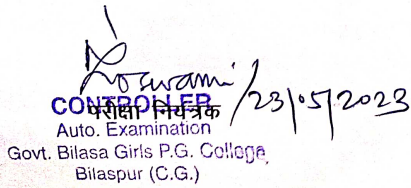 Goswami / 23/05/2023
CONTROLLER
परीक्षा नियंत्रक
Auto. Examination
Govt. Bilasa Girls P.G. College
Bilaspur (C.G.)